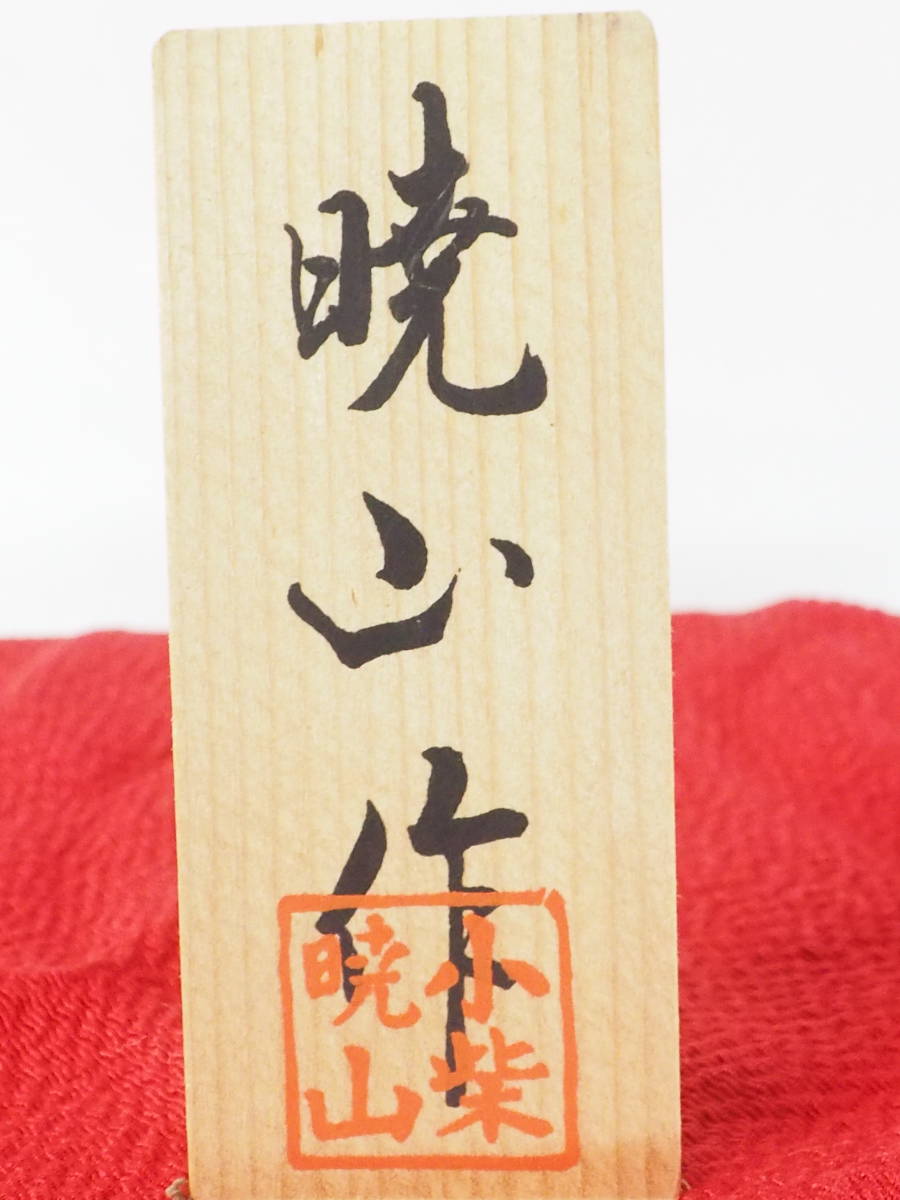 暁山作
小柴
暁山